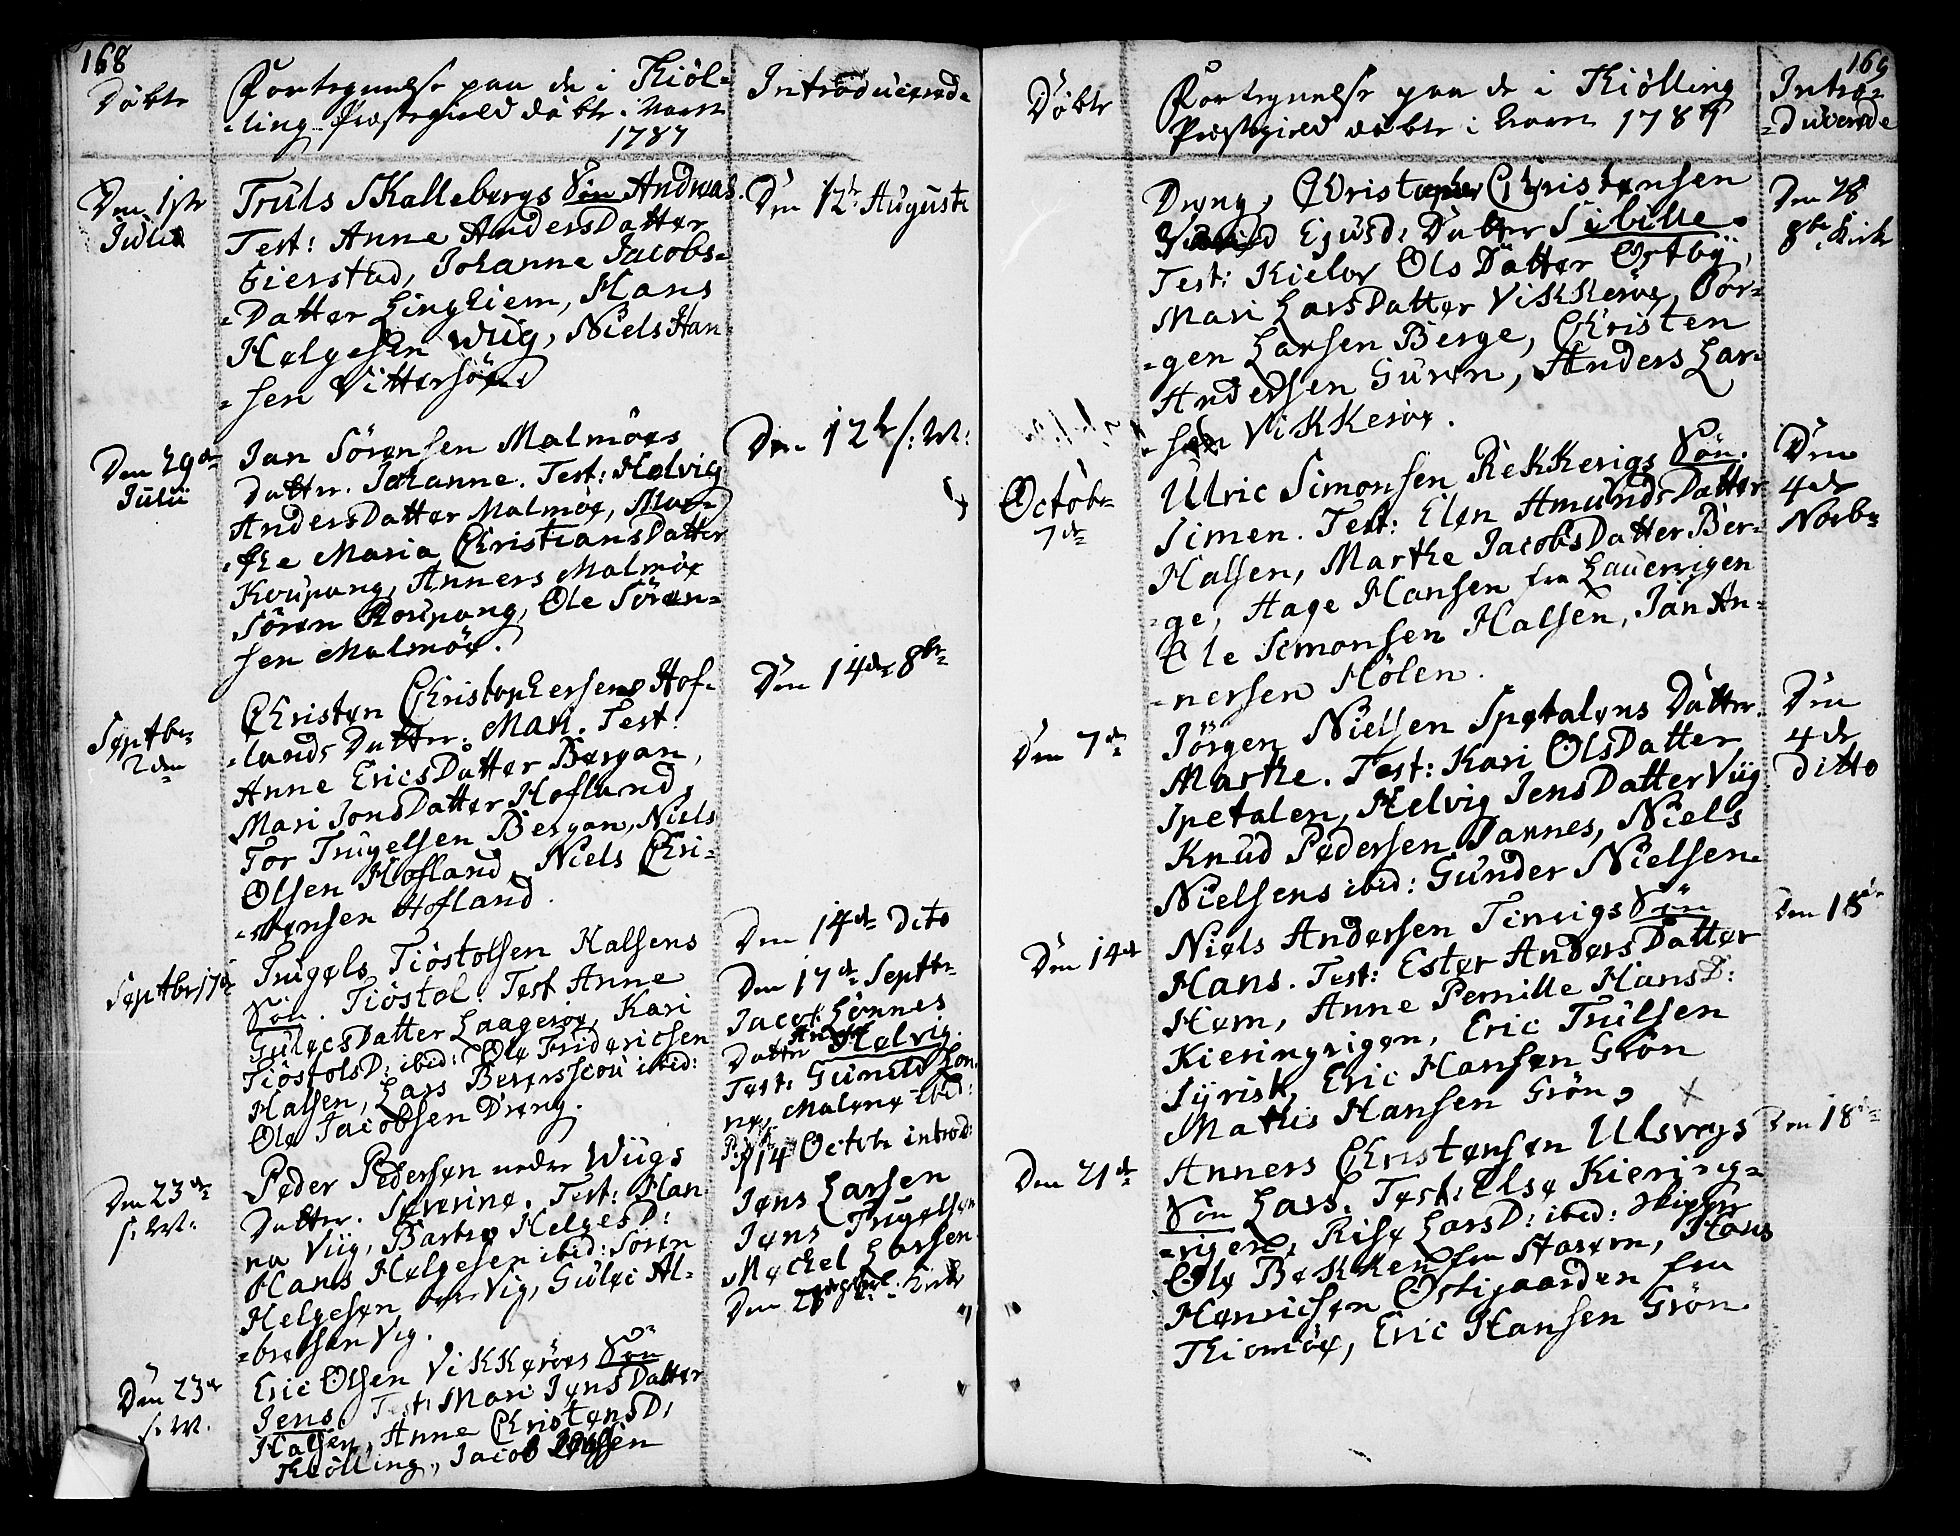 168
Döbte
Fortegnelse paa de i Kiöl-
-ling Præstegield döbte i Aaret
1787
Introducerede
Den 1ste
Julii
Truls Skallebergs Sön Andreas.
Test: Anne AndersDatter
Gierstad, Johanne Jacobs-
-Datter Lingliem, Hans
Helgesen Wiig, Niels Han-
-sen Vittersöe.
Den 12te Augusti
Den 29de
Julii
Jan Sörensen Malmöes
Datter. Johanne. Test: Helvig
AndersDatter Malmöe, Mar-
-the Maria ChristiansDatter
Koupang, Anners Malmöe
Sören Koupang, Ole Sören-
sen Malmöe.
Den 12te s: M:
Septbr
2den
Christen Christophersens Hof-
-lands Datter. Mari. Test:
Anne EricsDatter Bergan,
Mari JonsDatter Hofland,
Tor Trugelsen Bergan, Niels
Olsen Hofland, Niels Chri-
-stensen Hofland.
Den 14de 8br
Septbr 17de
Trugels Tiöstolsen Halsens
Sön. Tiöstol. Test Anne
GulecsDatter Laagesöe, Kari
TiöstolsD: ibid: Ole Friderichsen
Halsen, Lars Berersscou ibid:
Ole Jacobsen Dreng.
Den 14de Dito
Den 17de Septbr
Jacob Lönnes
Datter Helvig.
Test: Gunild Lön-
ne, Malene ibid:
14 Octobr introd:
Jens Larsen
Jens Trugelsen
Mechel Larsen
Den 23de
s: M:
Peder Pedersen nedre Wiigs
Datter. Severine. Test: Han-
na Viig, Barbro HelgesD:
Hans Helgesen ibid: Sören
Helgesen övre Vig, Gulei Al-
-bretsen Vig.
Den 28 8br i Kirke
Den 23de
s: M.
Eric Olsen Vikkeröes Sön
Jens. Test: Mari JensDatter
Halsen, Anne ChristensD:
Kiölling, Jacob Olsen
169
Döbte
Fortegnelse paa de i Kiölling
Præstegield döbte i Aaret 1787
Intro-
-ducerede
Dreng, Christopher Christensen
Ejusd: Datter Sibille.
Test: Kielov OlsDatter Östby,
Mari LarsDatter Vikkeröe, Jör-
-gen Larsen Berge, Christen
Andersen Guren, Anders Lar-
-sen Vikkeröe.
Den 28
8br i Kirke
Octobr
7de
Ulric Simonsen Rekkevigs Sön.
Simen. Test: Elen AmundsDatter
Halsen, Marthe JacobsDatter Ber-
-ge, Hage Hansen fra Laurvigen
Ole Simonsen Halsen, Jan An-
-nersen Hölen.
Den
4de
Novbr
Den 7de
Jörgen Nielsen Spetalens Datter
Marthe. Test: Kari OlsDatter
Spetalen, Helvig JensDatter Viig
Knud Pedersen Sannes, Niels
Nielsens ibid: Gunder Nielsen
Den
4de
Ditto
Den 14de
Niels Andersen Tinvigs Sön
Hans. Test: Ester AndersDatter
Hem, Anne Pernille HansD:
Kieringvigen, Eric Trulsen
Syrist, Eric Hansen Grön
Mathis Hansen Grön,
Den 18de
Den 21de
Anners Christensen Ulsvegs
Sön Lars. Test: Else Kieringv-
-vigen, Rise LarsD: ibid: Skipper
Ole Bekken fra Starem, Hans
Henricsen Östigaarden fra
Thiomöe, Eric Hansen Grön.
Den 18de